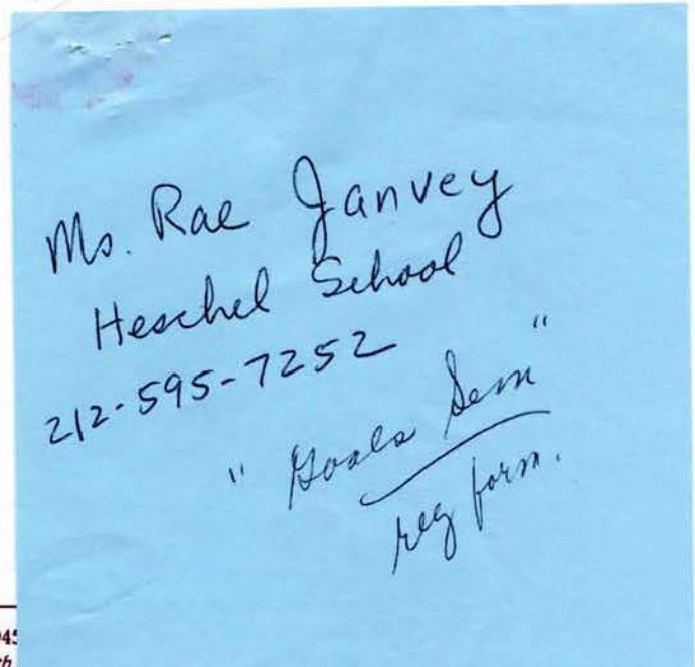 Ms. Rae Janvey
Heschel School
212-595-7252
"Goals Sem"
reg form.